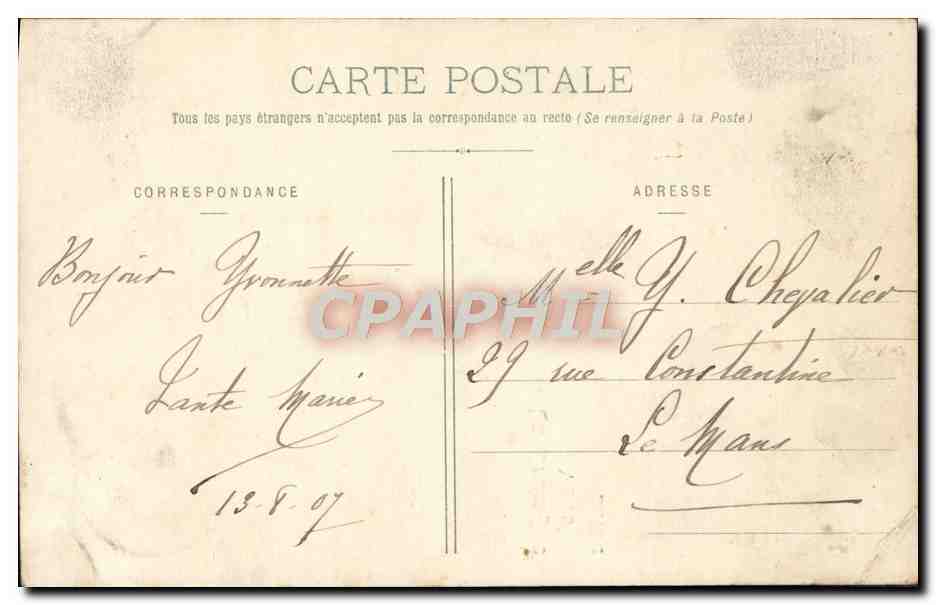 CARTE POSTALE
Tous les pays étrangers n'acceptent pas la correspondance au recto (Se renseigner à la Poste)
CORRESPONDANCE
Bonjour Yvonnette
Tante Marie
13-8-07
ADRESSE
Melle Y. Chevalier
29 rue Constantine
Le Mans
CPAPHIL